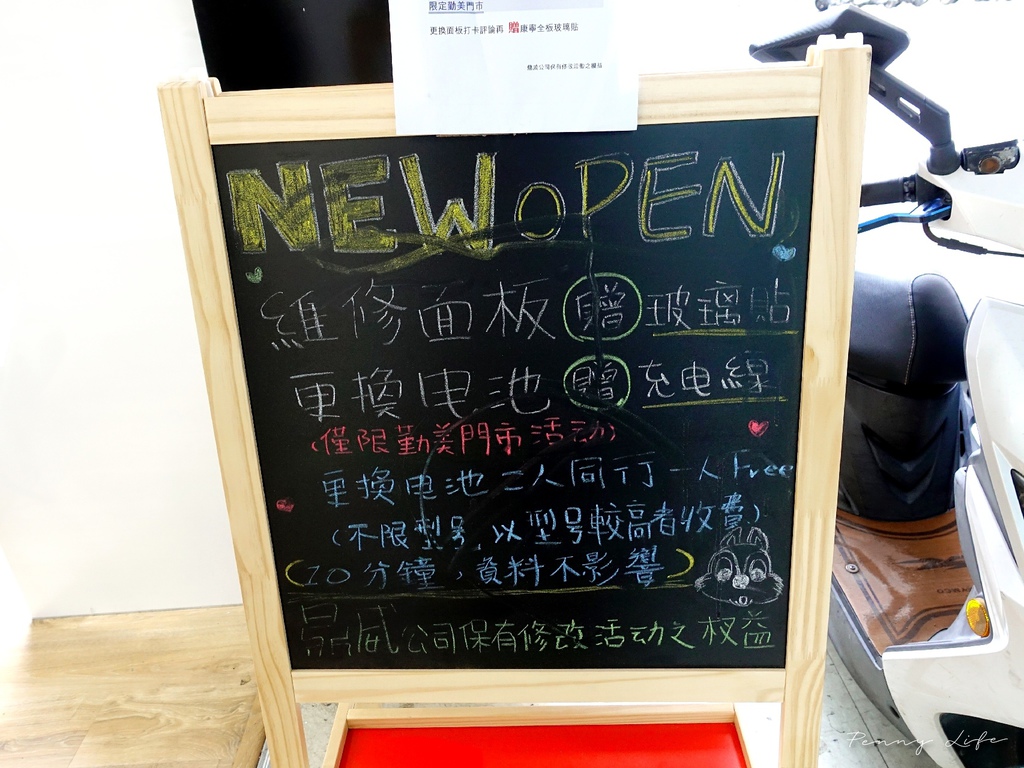 限定勤美門市
更換面板打卡評論再 贈康寧全板玻璃貼
鼎威公司保有修改活動之權益
NEW OPEN
維修面板贈玻璃貼
更換电池贈充电線
(僅限勤美門市活动)
更換电池二人同行一人Free
(不限型号,以型号較高者收費)
(10分鐘,資料不影響)
鼎威公司保有修改活动之权益
Penny Life